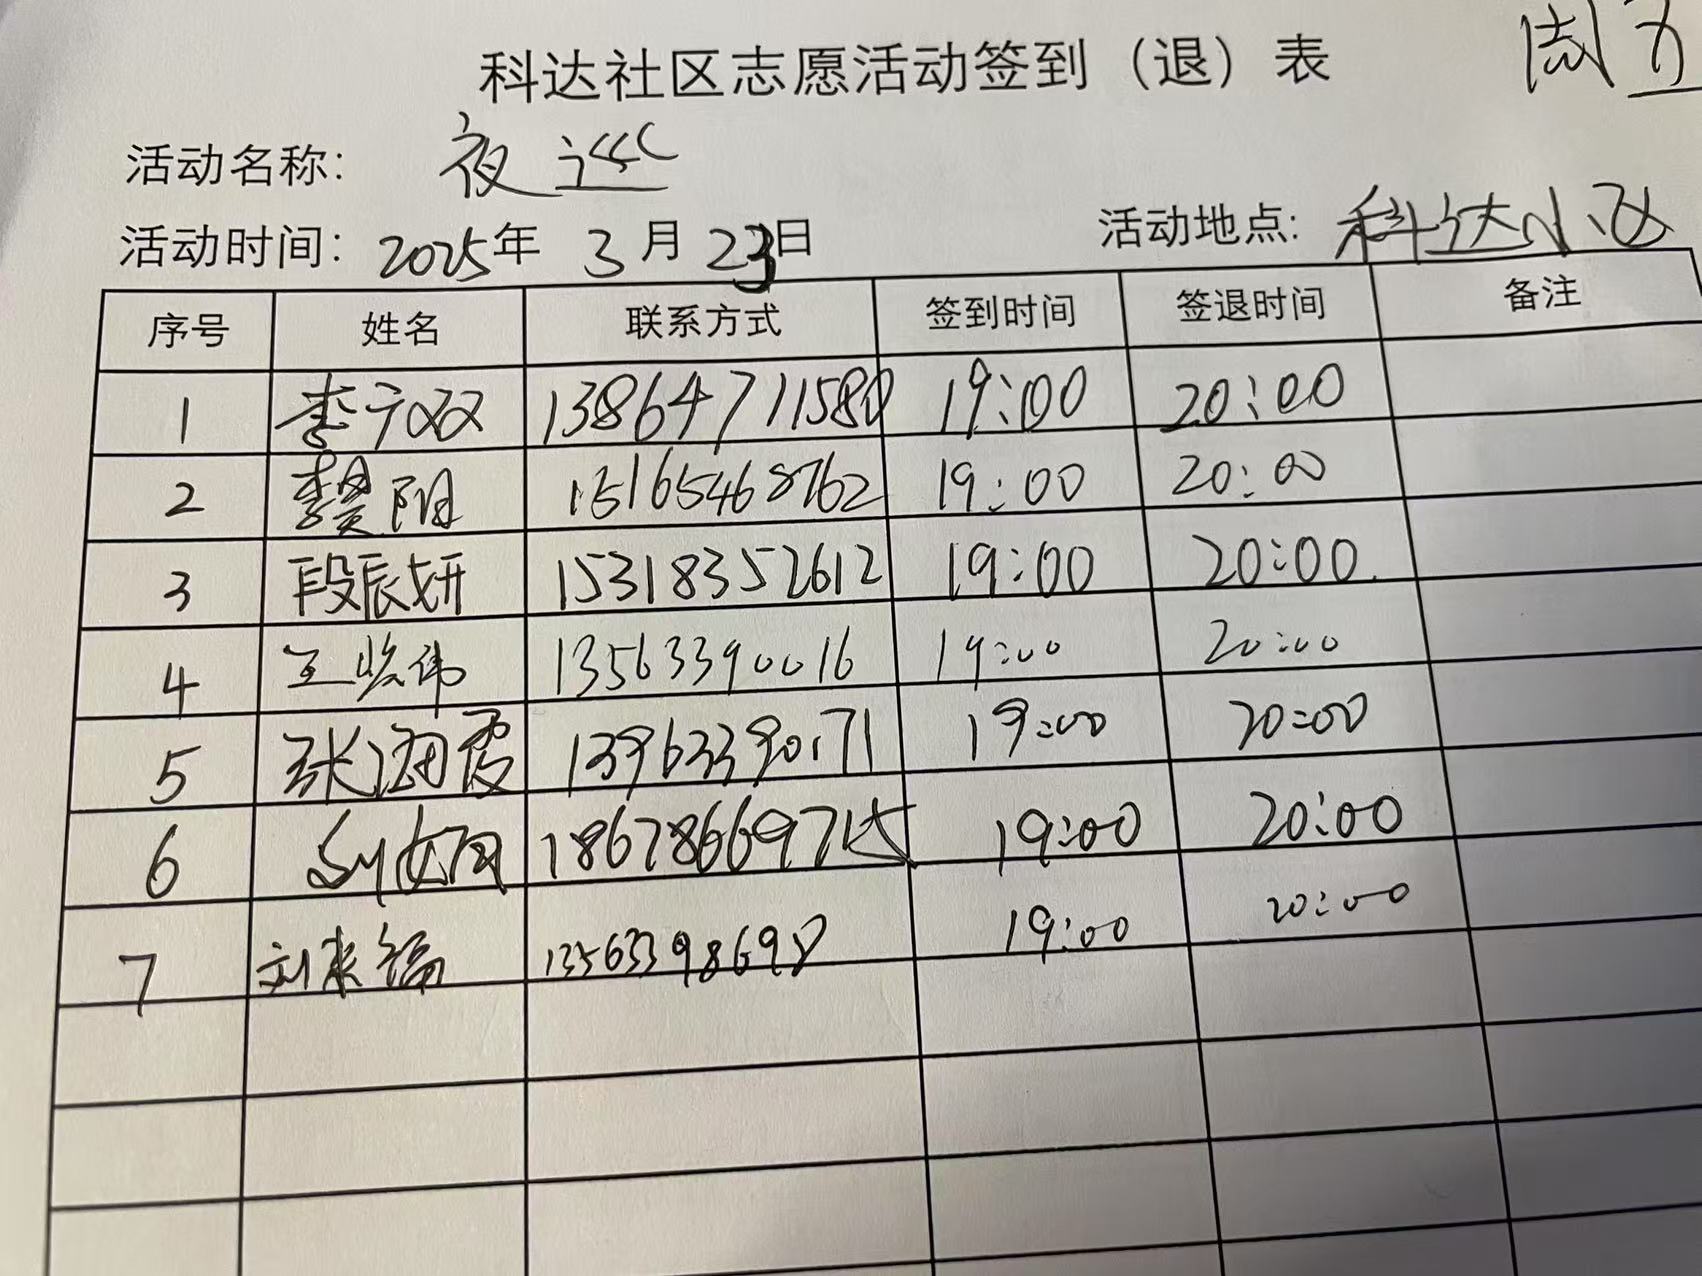 周五
科达社区志愿活动签到（退）表
活动名称： 夜巡
活动时间：2025年 3月23日 活动地点：科达小区
序号 姓名 联系方式 签到时间 签退时间 备注
1 李广双 13864711580 19:00 20:00
2 15165468762 19:00 20:00
3 段辰妍 15318352612 19:00 20:00
4 13563390016 19:00 20:00
5 张海霞 13963390171 19:00 20:00
6 18678669715 19:00 20:00
7 刘来福 13563398698 19:00 20:00